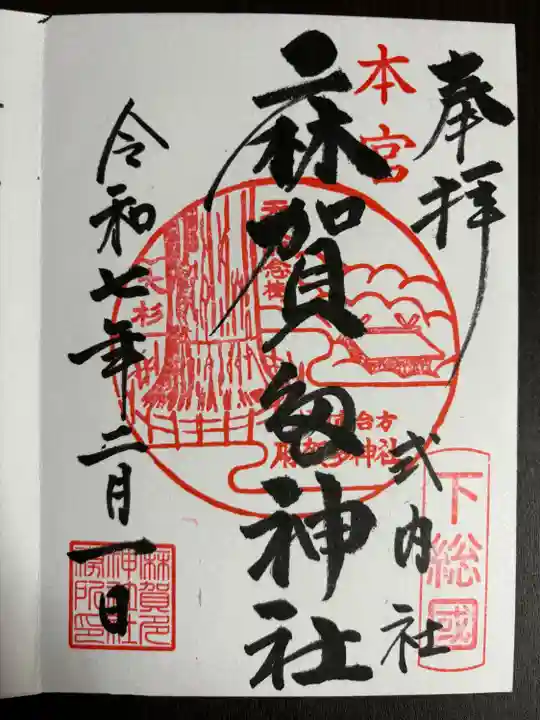 奉拝
本宮
麻賀多神社
式内社
下総國
大杉
台方
神社
令和七年二月一日
麻賀多
神社社
務所印